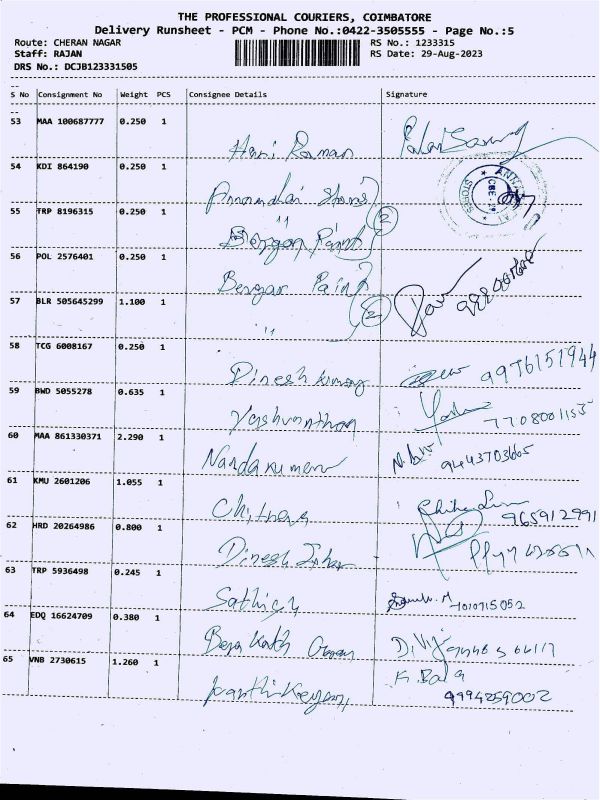 THE PROFESSIONAL COURIERS, COIMBATORE
Delivery Runsheet - PCM - Phone No.:0422-3505555 - Page No.:5
Route: CHERAN NAGAR RS No.: 1233315
Staff: RAJAN RS Date: 29-Aug-2023
DRS No.: DCJB123331505
S No Consignment No Weight PCS Consignee Details Signature
53 MAA 100687777 0.250 1 Hari Raman
54 KDI 864190 0.250 1 Annamalai Stores
55 TRP 8196315 0.250 1 " 2
56 POL 2576401 0.250 1 Berger Paint
57 BLR 505645299 1.100 1 " 2
58 TCG 6008167 0.250 1 Dinesh Kumar 9976151944
59 BWD 5055278 0.635 1 Yashvanthan 7708001155
60 MAA 861330371 2.290 1 Nandakumar 9443703665
61 KMU 2601206 1.055 1 Chithra 965912991
62 HRD 20264986 0.800 1 Dinesh
63 TRP 5936498 0.245 1 Sathish 7010715052
64 EDQ 16624709 0.380 1
65 VNB 2730615 1.260 1 Karthikeyan K. Bala
9994259002